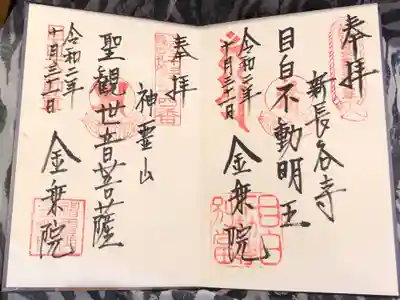 奉拝
新長谷寺
目白不動明王
令和二年
十月三十一日
金乗院
目白
別当
奉拝
神霊山
聖觀世音菩薩
令和二年
十月三十一日
金乗院